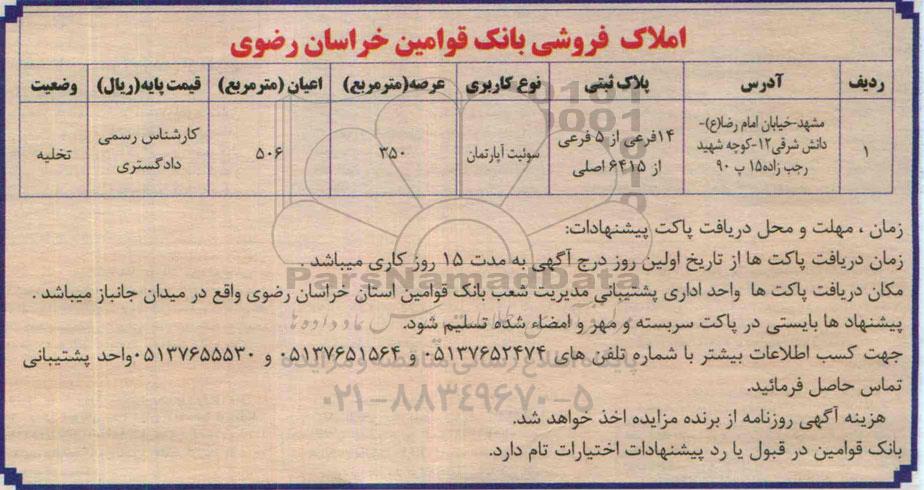 املاک فروشی بانک قوامین خراسان رضوی
ردیف آدرس پلاک ثبتی نوع کاربری عرصه(مترمربع) اعیان (مترمربع) قیمت پایه(ریال) وضعیت
۱ مشهد-خیابان امام رضا(ع)- دانش شرقی۱۲-کوچه شهید رجب زاده۱۵ پ ۹۰ ۱۴فرعی از ۵ فرعی از ۶۴۱۵ اصلی سوئیت آپارتمان ۳۵۰ ۵۰۶ کارشناس رسمی دادگستری تخلیه
زمان ، مهلت و محل دریافت پاکت پیشنهادات:
زمان دریافت پاکت ها از تاریخ اولین روز درج آگهی به مدت ۱۵ روز کاری میباشد .
مکان دریافت پاکت ها واحد اداری پشتیبانی مدیریت شعب بانک قوامین استان خراسان رضوی واقع در میدان جانباز میباشد .
پیشنهاد ها بایستی در پاکت سربسته و مهر و امضاء شده تسلیم شود.
جهت کسب اطلاعات بیشتر با شماره تلفن های ۰۵۱۳۷۶۵۲۴۷۴ و ۰۵۱۳۷۶۵۱۵۶۴ و ۰۵۱۳۷۶۵۵۵۳۰واحد پشتیبانی
تماس حاصل فرمائید.
هزینه آگهی روزنامه از برنده مزایده اخذ خواهد شد.
بانک قوامین در قبول یا رد پیشنهادات اختیارات تام دارد.
ParsNamadData
پایگاه اطلاع رسانی مناقصه و مزایده
۰۲۱-۸۸۳۴۹۶۷۰-۵